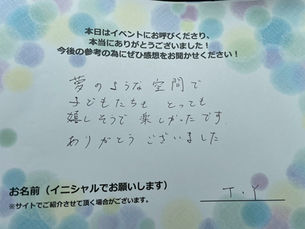 本日はイベントにお呼びくださり、
本当にありがとうございました！
今後の参考の為にぜひ感想をお聞かせください！
夢のような空間で
子どもたちも とっても
嬉しそうで楽しかったです
ありがとうございました
お名前（イニシャルでお願いします）
T.Y
※サイトでご紹介させて頂く場合がございます。